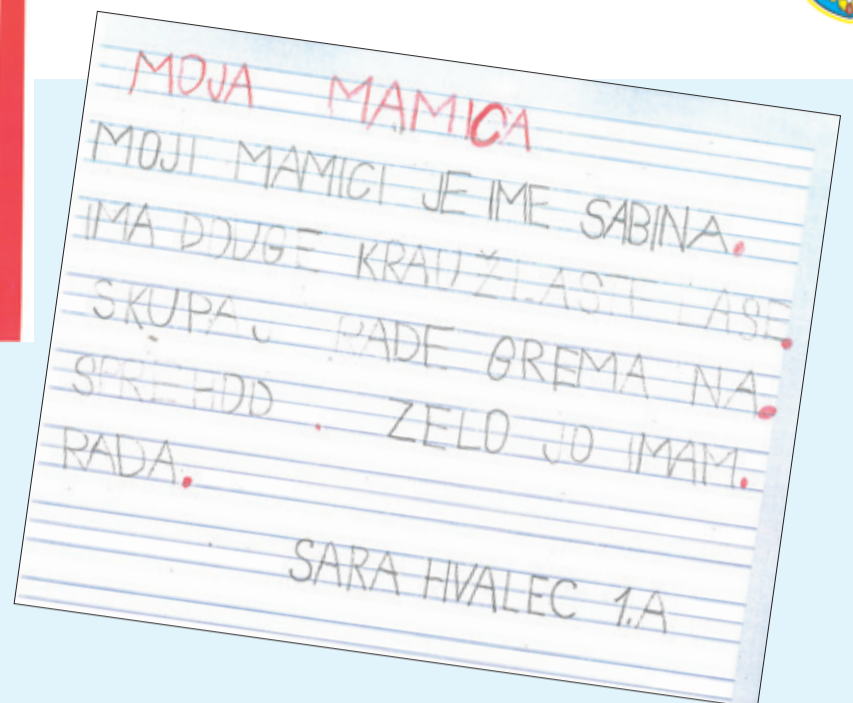 MOJA MAMICA
MOJI MAMICI JE IME SABINA.
IMA DOUGE KRAUŽLASTE LASE.
SKUPAJ RADE GREMA NA.
SPREHOD. ZELO JO IMAM.
RADA.
SARA HVALEC 1.A